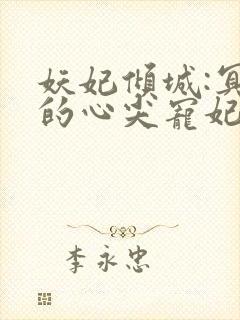 妖妃倾城:冥
的心尖宠妃
李永忠